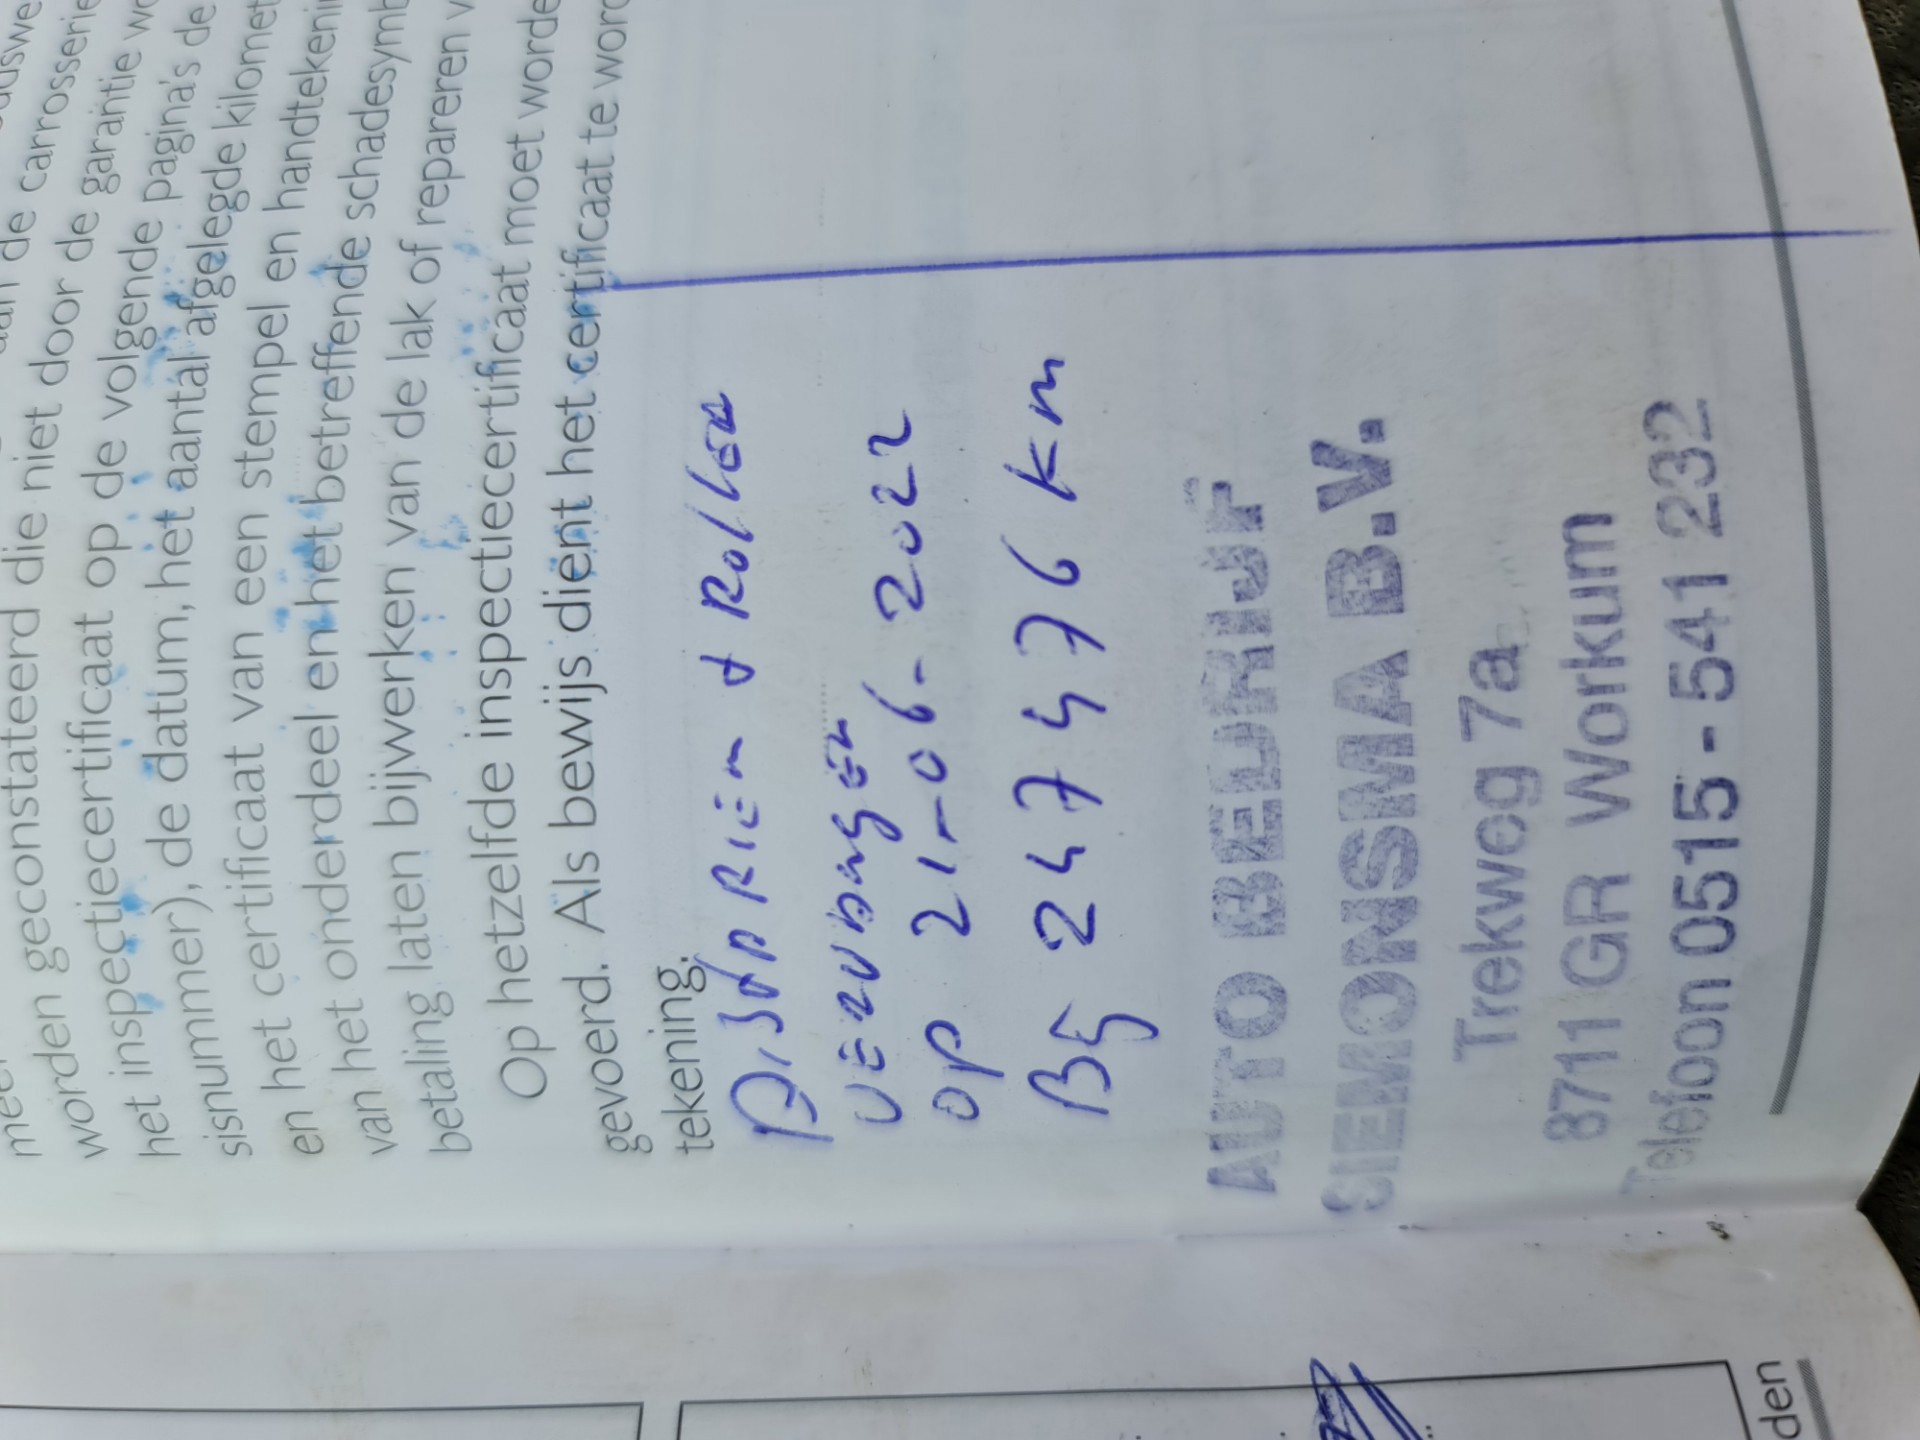 de carrosserie
worden geconstateerd die niet door de garantie
het inspectiecertificaat op de volgende pagina's de
sisnummer), de datum, het aantal afgelegde kilomet
en het certificaat van een stempel en handtekeni
van het onderdeel en het betreffende schadesymb
betaling laten bijwerken van de lak of repareren v
Op hetzelfde inspectiecertificaat moet worde
gevoerd. Als bewijs dient het certificaat te word
tekening.
Dis. RiEm + Rollen
VERVANGEN
op 21-06-2022
By 247476 km
AUTO BEDRIJF
SIEMONSMA B.V.
Trekweg 7a
8711 GR Workum
Telefoon 0515 - 541 232
den